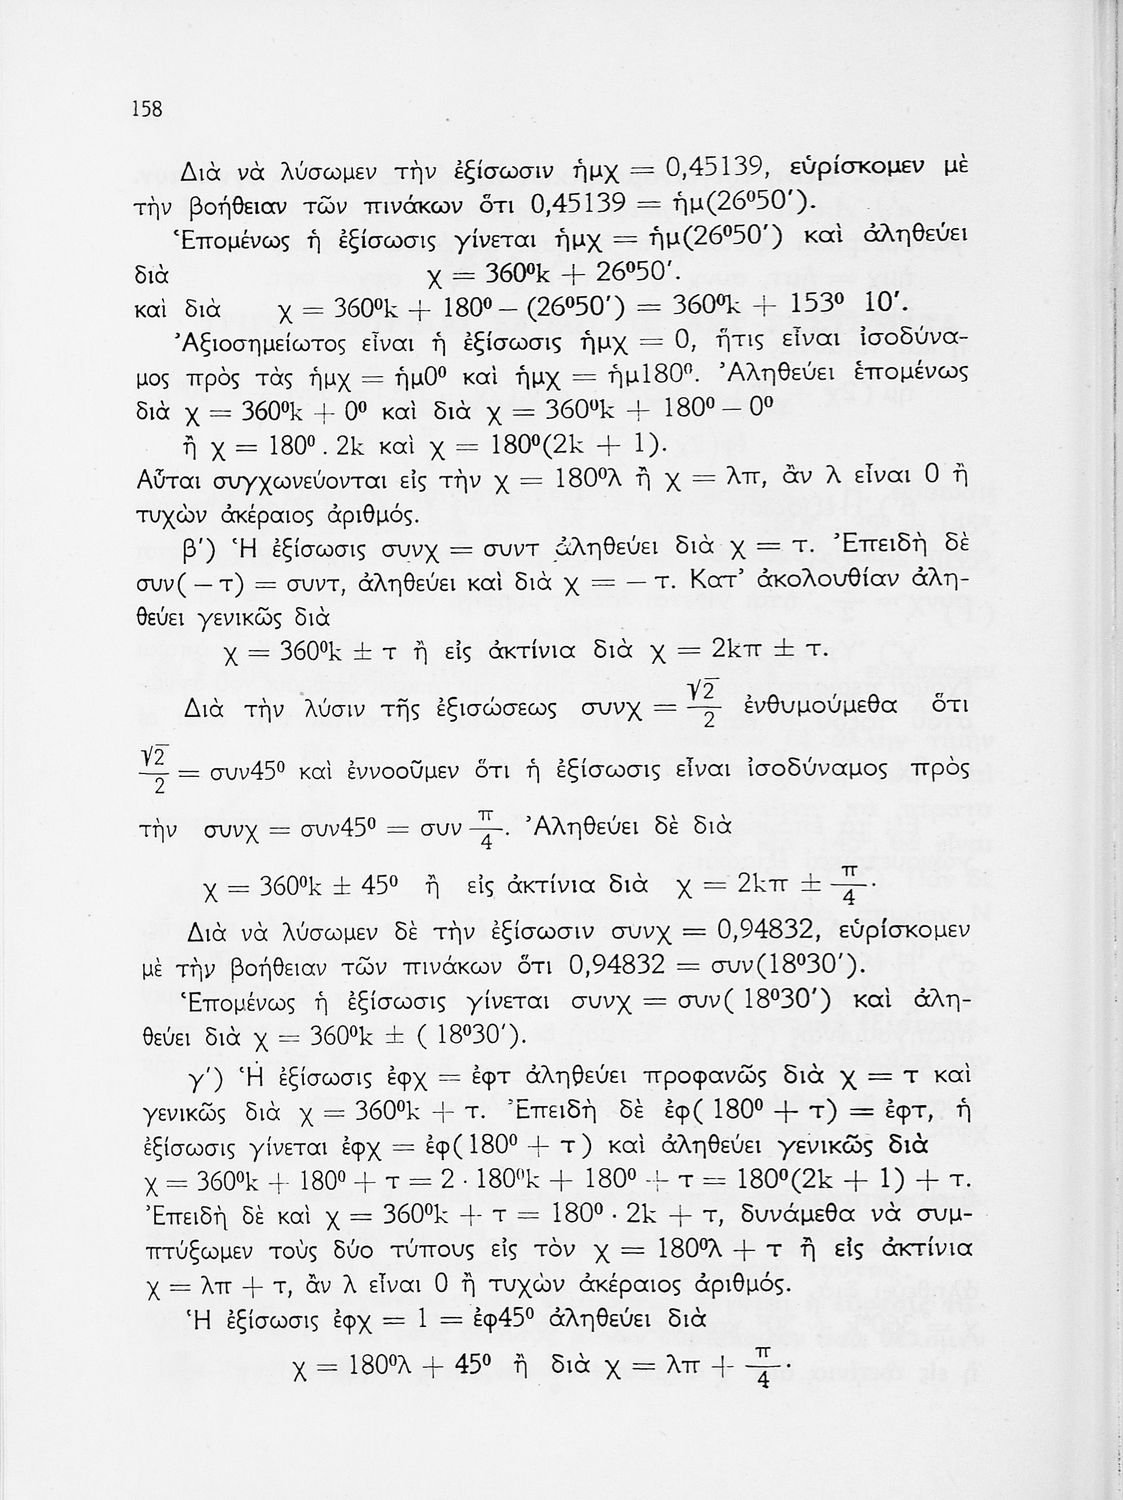 158
Διὰ νὰ λύσωμεν τὴν ἐξίσωσιν ἡμχ = 0,45139, εὑρίσκομεν μὲ
τὴν βοήθειαν τῶν πινάκων ὅτι 0,45139 = ἡμ(26⁰50').
Ἑπομένως ἡ ἐξίσωσις γίνεται ἡμχ = ἡμ(26⁰50') καὶ ἀληθεύει
διὰ χ = 360⁰k + 26⁰50'.
καὶ διὰ χ = 360⁰k + 180⁰ – (26⁰50') = 360⁰k + 153⁰ 10'.
Ἀξιοσημείωτος εἶναι ἡ ἐξίσωσις ἡμχ = 0, ἥτις εἶναι ἰσοδύνα-
μος πρὸς τὰς ἡμχ = ἡμ0⁰ καὶ ἡμχ = ἡμ180⁰. Ἀληθεύει ἑπομένως
διὰ χ = 360⁰k + 0⁰ καὶ διὰ χ = 360⁰k + 180⁰ – 0⁰
ἢ χ = 180⁰ . 2k καὶ χ = 180⁰(2k + 1).
Αὗται συγχωνεύονται εἰς τὴν χ = 180⁰λ ἢ χ = λπ, ἂν λ εἶναι 0 ἢ
τυχὼν ἀκέραιος ἀριθμός.
β') Ἡ ἐξίσωσις συνχ = συντ ἀληθεύει διὰ χ = τ. Ἐπειδὴ δὲ
συν( – τ) = συντ, ἀληθεύει καὶ διὰ χ = – τ. Κατ' ἀκολουθίαν ἀλη-
θεύει γενικῶς διὰ
χ = 360⁰k ± τ ἢ εἰς ἀκτίνια διὰ χ = 2kπ ± τ.
Διὰ τὴν λύσιν τῆς ἐξισώσεως συνχ = √2/2 ἐνθυμούμεθα ὅτι
√2/2 = συν45⁰ καὶ ἐννοοῦμεν ὅτι ἡ ἐξίσωσις εἶναι ἰσοδύναμος πρὸς
τὴν συνχ = συν45⁰ = συν π/4. Ἀληθεύει δὲ διὰ
χ = 360⁰k ± 45⁰ ἢ εἰς ἀκτίνια διὰ χ = 2kπ ± π/4.
Διὰ νὰ λύσωμεν δὲ τὴν ἐξίσωσιν συνχ = 0,94832, εὑρίσκομεν
μὲ τὴν βοήθειαν τῶν πινάκων ὅτι 0,94832 = συν(18⁰30').
Ἑπομένως ἡ ἐξίσωσις γίνεται συνχ = συν( 18⁰30') καὶ ἀλη-
θεύει διὰ χ = 360⁰k ± ( 18⁰30').
γ') Ἡ ἐξίσωσις ἐφχ = ἐφτ ἀληθεύει προφανῶς διὰ χ = τ καὶ
γενικῶς διὰ χ = 360⁰k + τ. Ἐπειδὴ δὲ ἐφ( 180⁰ + τ) = ἐφτ, ἡ
ἐξίσωσις γίνεται ἐφχ = ἐφ(180⁰ + τ) καὶ ἀληθεύει γενικῶς διὰ
χ = 360⁰k + 180⁰ + τ = 2 · 180⁰k + 180⁰ + τ = 180⁰(2k + 1) + τ.
Ἐπειδὴ δὲ καὶ χ = 360⁰k + τ = 180⁰ · 2k + τ, δυνάμεθα νὰ συμ-
πτύξωμεν τοὺς δύο τύπους εἰς τὸν χ = 180⁰λ + τ ἢ εἰς ἀκτίνια
χ = λπ + τ, ἂν λ εἶναι 0 ἢ τυχὼν ἀκέραιος ἀριθμός.
Ἡ ἐξίσωσις ἐφχ = 1 = ἐφ45⁰ ἀληθεύει διὰ
χ = 180⁰λ + 45⁰ ἢ διὰ χ = λπ + π/4.